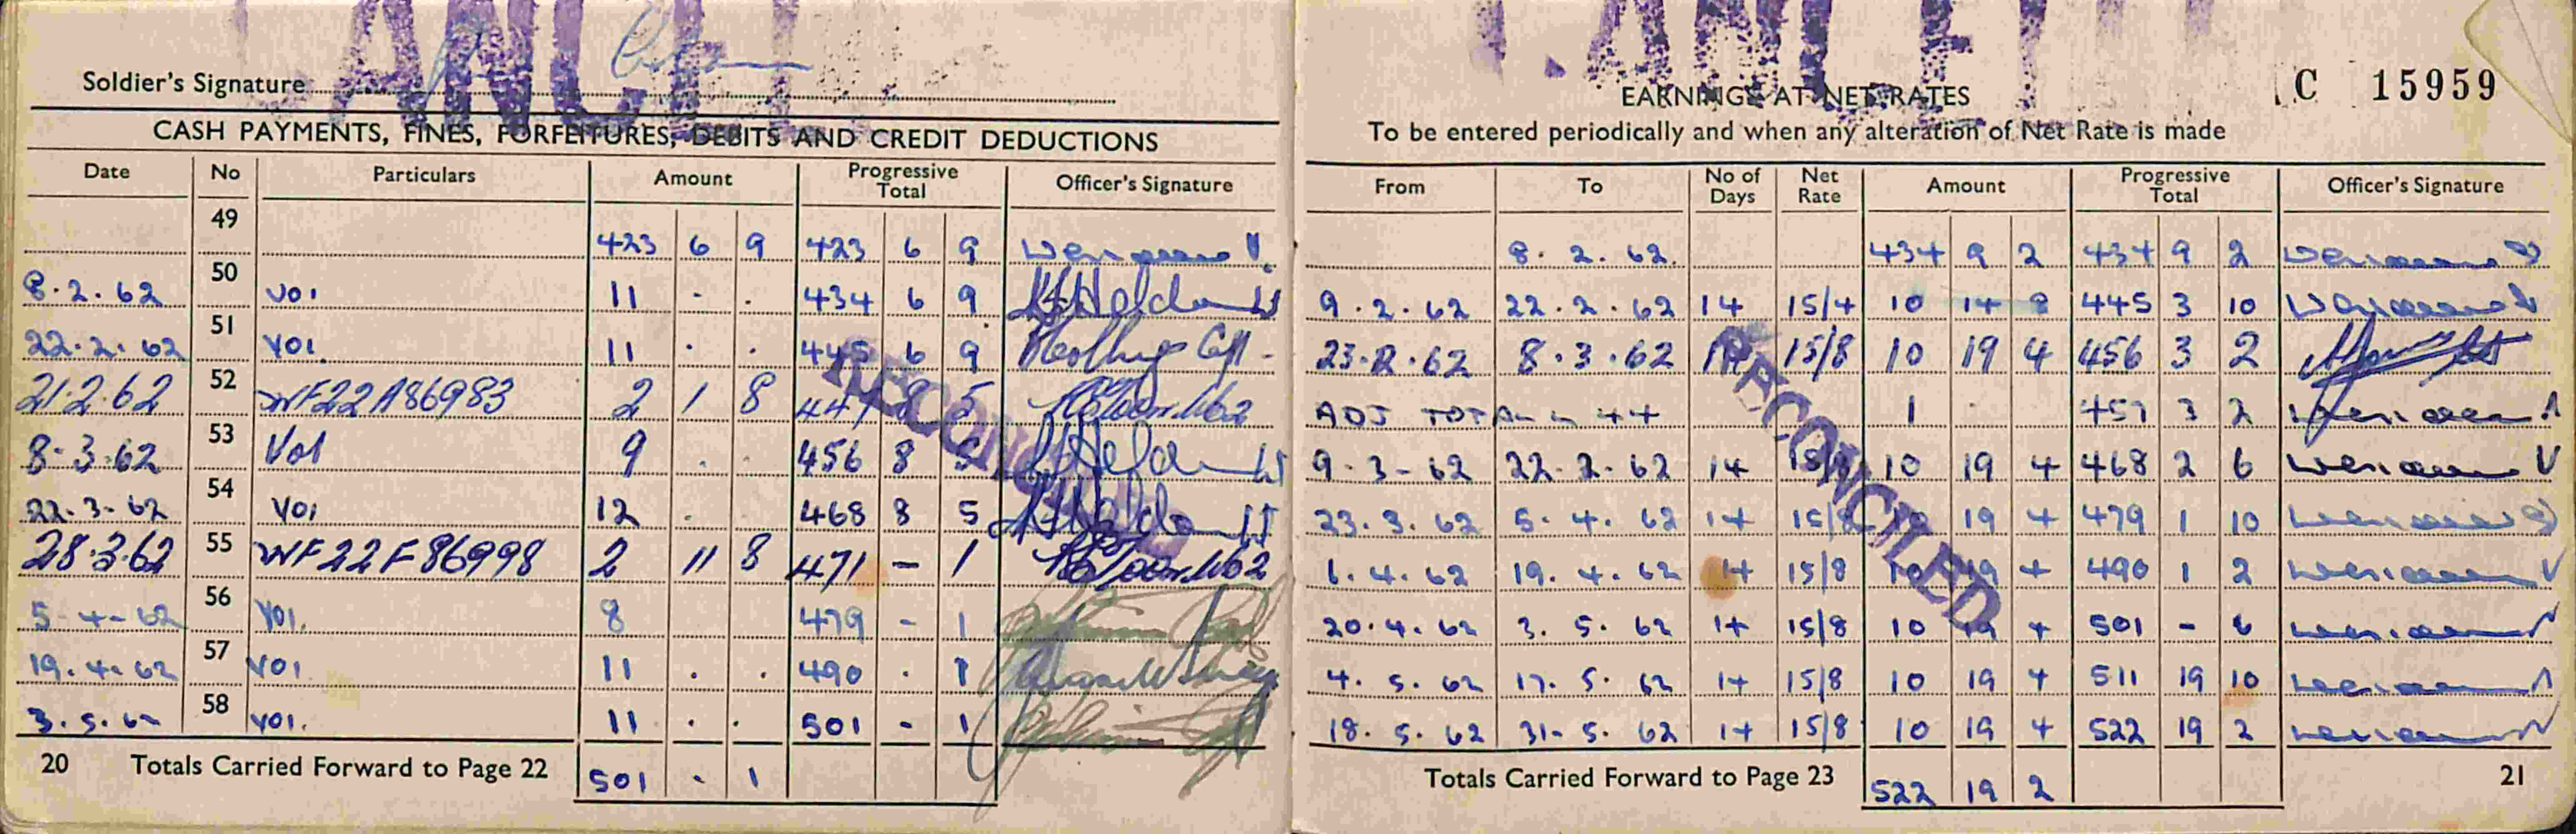 CANCELLED
Soldier's Signature
CASH PAYMENTS, FINES, FORFEITURES, DEBITS AND CREDIT DEDUCTIONS
Date No Particulars Amount Progressive Total Officer's Signature
49 423 6 9 423 6 9
8.2.62 50 VO1 11 . . 434 6 9
22.2.62 51 VO1 11 . . 445 6 9
21.2.62 52 WF22A86983 2 1 8 447 8 5
8.3.62 53 Vo1 9 . . 456 8 5
22.3.62 54 VO1 12 . . 468 8 5
28.3.62 55 WF22F86998 2 11 8 471 – 1
5-4-62 56 VO1. 8 479 – 1
19.4.62 57 VO1 11 . . 490 . 1
3.5.62 58 VO1. 11 . . 501 – 1
20 Totals Carried Forward to Page 22 501 . 1
RECONCILED
C 15959
EARNINGS AT NET RATES
To be entered periodically and when any alteration of Net Rate is made
From To No of Days Net Rate Amount Progressive Total Officer's Signature
8.2.62 434 9 2 434 9 2
9.2.62 22.2.62 14 15/4 10 14 8 445 3 10
23.2.62 8.3.62 14 15/8 10 19 4 456 3 2
ADJ TOTAL 44 1 . 457 3 2
9.3-62 22.2.62 14 15/8 10 19 4 468 2 6
23.3.62 5.4.62 14 15/8 10 19 4 479 1 10
6.4.62 19.4.62 14 15/8 10 19 4 490 1 2
20.4.62 3.5.62 14 15/8 10 19 4 501 – 6
4.5.62 17.5.62 14 15/8 10 19 4 511 19 10
18.5.62 31-5.62 14 15/8 10 19 4 522 19 2
Totals Carried Forward to Page 23 522 19 2 21
RECONCILED